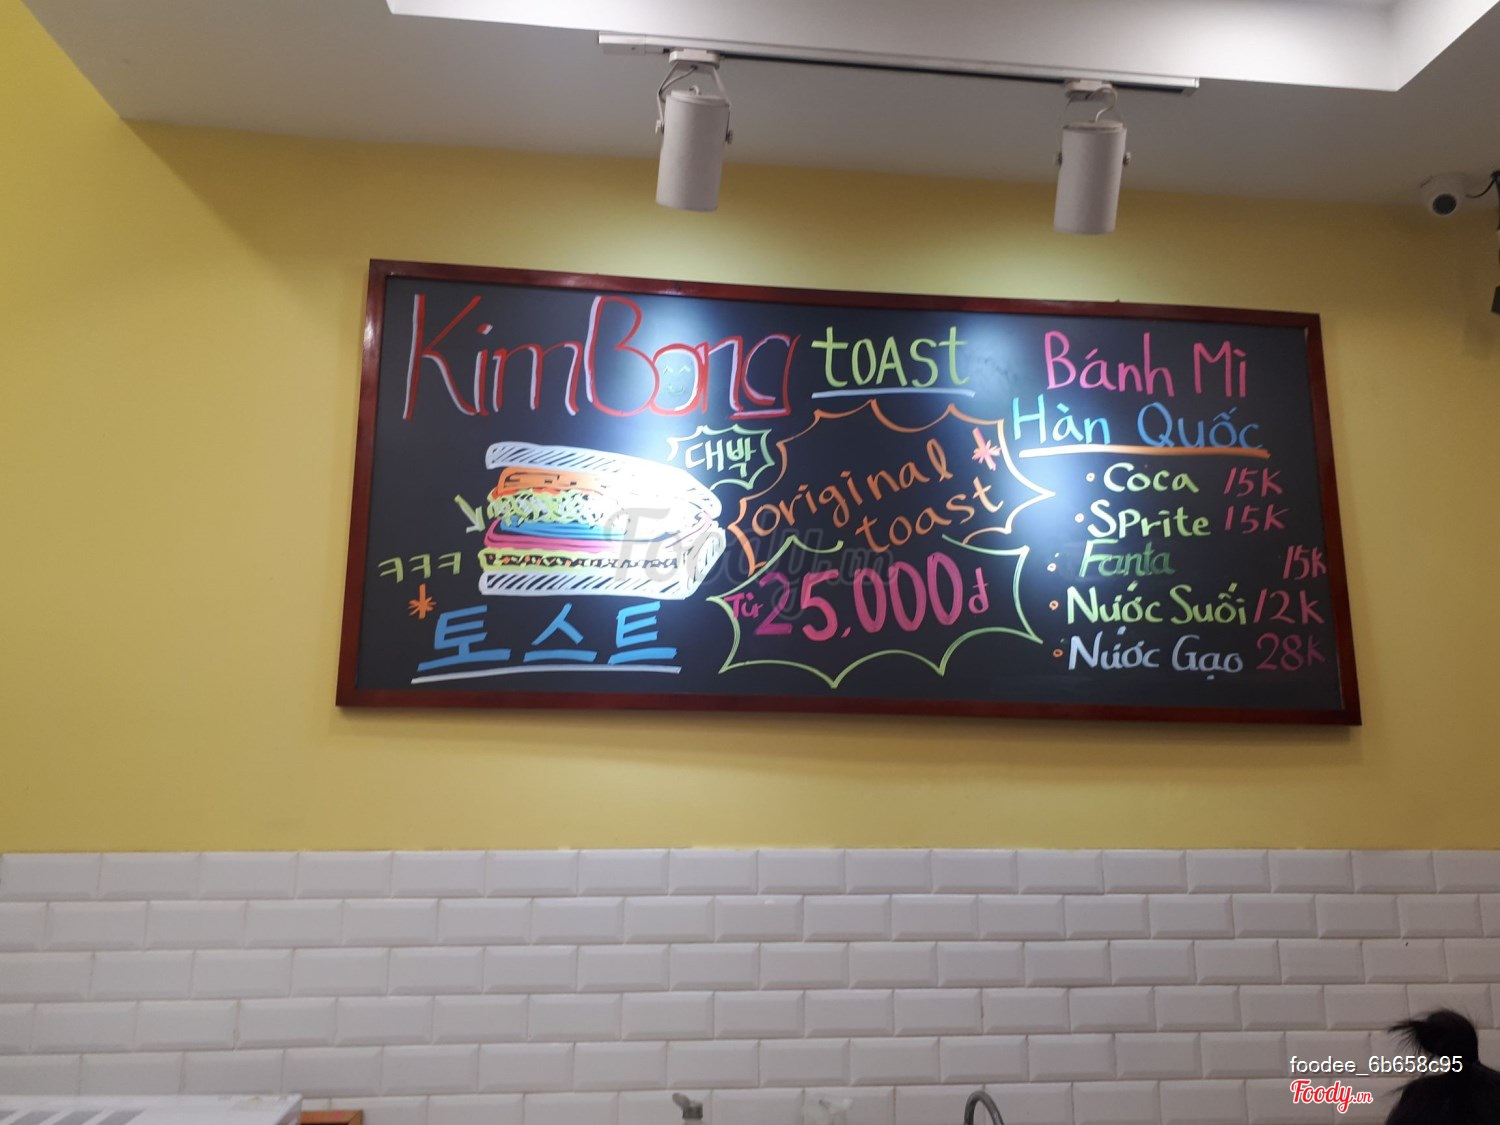 KimBong TOAST
대박
ㅋㅋㅋ
토스트
original
toast
Từ 25,000đ
Bánh Mì
Hàn Quốc
Coca 15K
Sprite 15K
Fanta 15K
Nước Suối 12K
Nước Gạo 28K
Foody.vn
foodee_6b658c95
Foody.vn